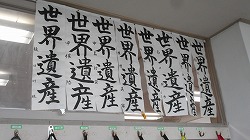 世界遺産
世界遺産
世界遺産
世界遺産
世界遺産
世界遺産
世界遺産